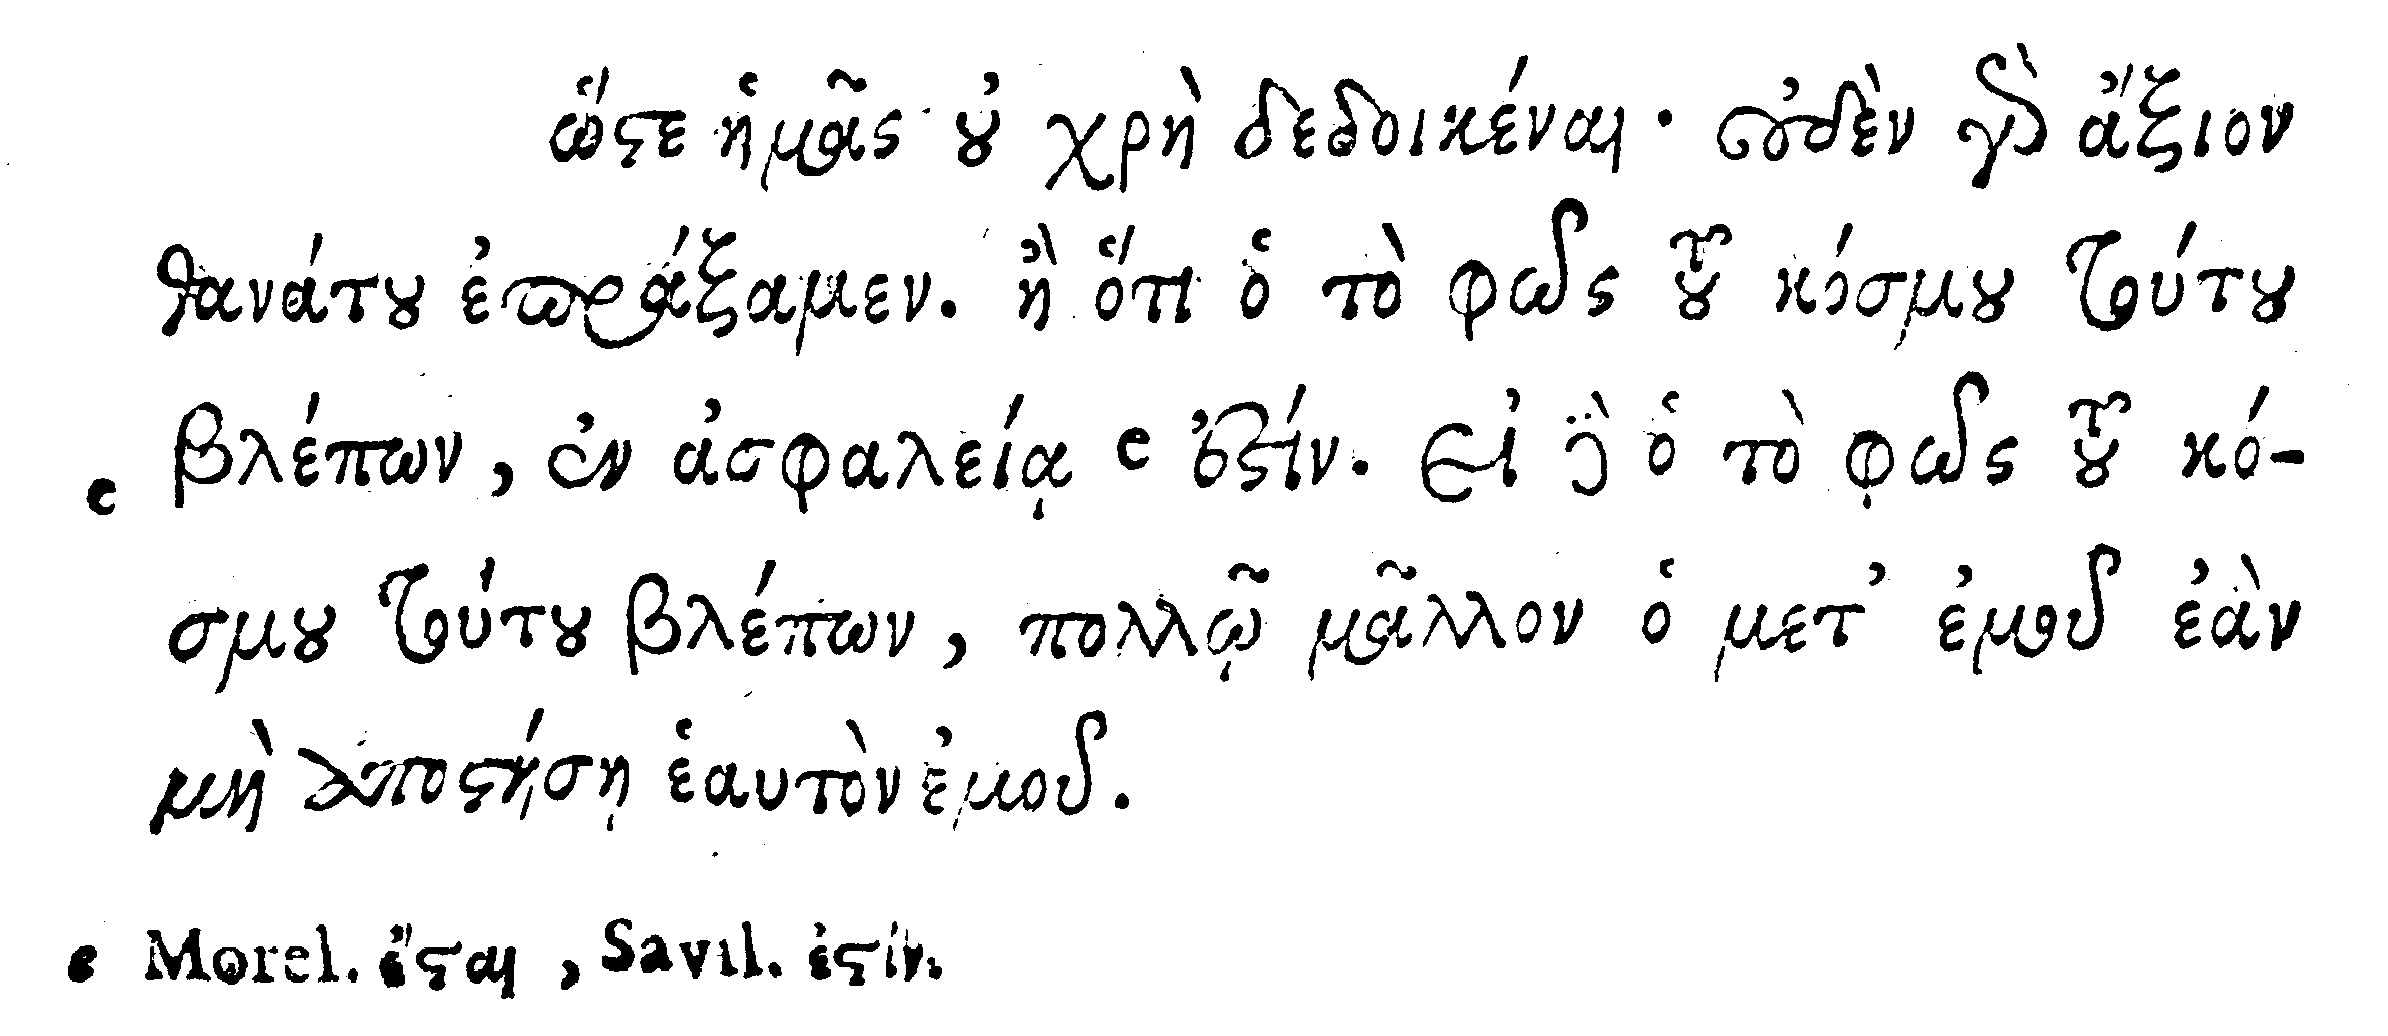 ὥστε ἡμᾶς οὐ χρὴ δεδοικέναι· οὐδὲν γὰρ ἄξιον
θανάτου ἐπράξαμεν. ἢ ὅτι ὁ τὸ φῶς τοῦ κόσμου τούτου
e βλέπων, ἐν ἀσφαλείᾳ e ἐστίν. Εἰ δὲ ὁ τὸ φῶς τοῦ κό-
σμου τούτου βλέπων, πολλῷ μᾶλλον ὁ μετ᾽ ἐμοῦ ἐὰν
μὴ ἀποστήσῃ ἑαυτὸν ἐμοῦ.
e Morel. ἔσται, Savil. ἐστίν.